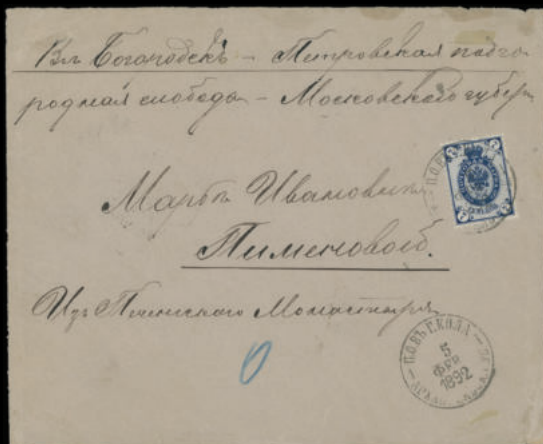 Въ Богородскъ – Петровская подго
родная слобода – Московской губерн
Марѳѣ Ивановнѣ
Пименовой.
Изъ Печенгскаго Монастыря
П.О. ВЪ Г. КОЛА
5
ФЕВ
1892